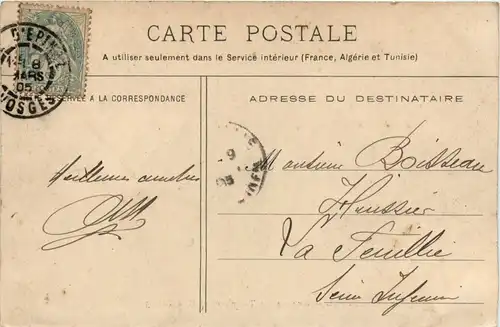 CARTE POSTALE
A utiliser seulement dans le Service intérieur (France, Algérie et Tunisie)
D'EPINAL
8
MARS
05
VOSGES
RÉSERVÉE A LA CORRESPONDANCE
ADRESSE DU DESTINATAIRE
9
05
Monsieur Boisseau
Huissier
La Feuillie
Seine Inférieure
Meilleures amitiés